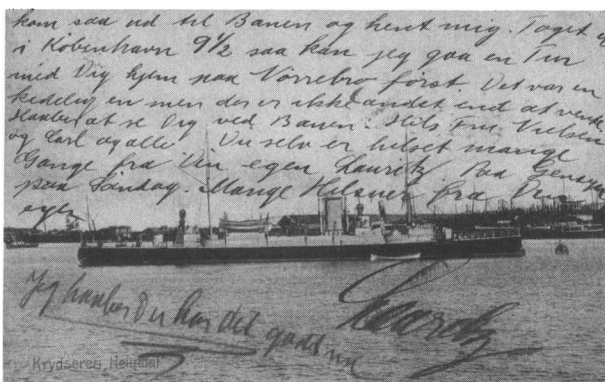 kom saa ud til Banen og hent mig. Toget er
i København 9½ saa kan jeg gaa en Tur
med Dig hjem paa Nörrebro först. Det var en
kedelig en men der er ikke andet end at vente.
Haaber at se Dig ved Banen. Hils Fru Nielsen
og Carl og alle. Du selv er hilset mange
Gange fra Din egen Lauritz. Paa Gensyn
paa Søndag. Mange Hilsner fra Din
egen
Lauritz
Jeg haaber Du har det godt
Krydseren Heimdal